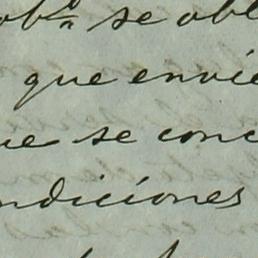 se obl
que envie
ue se conc
ndiciones